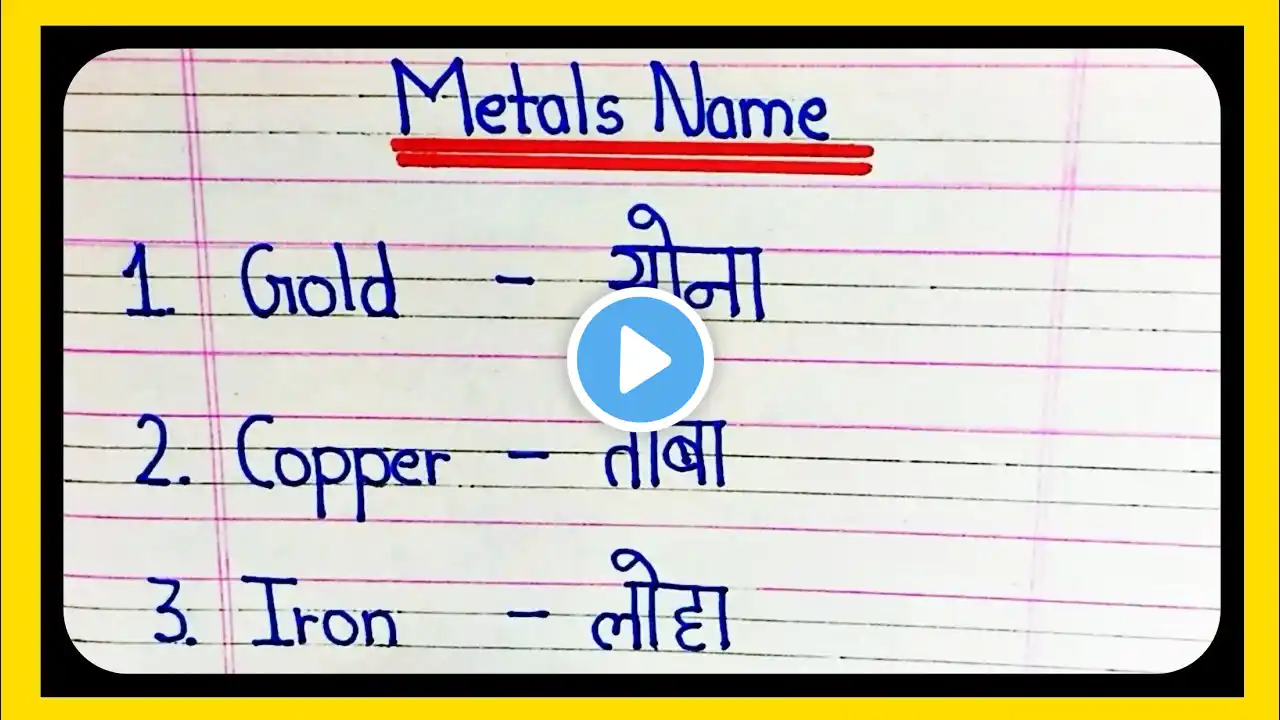 Metals Name
1. Gold - सोना
2. Copper - तांबा
3. Iron - लोहा